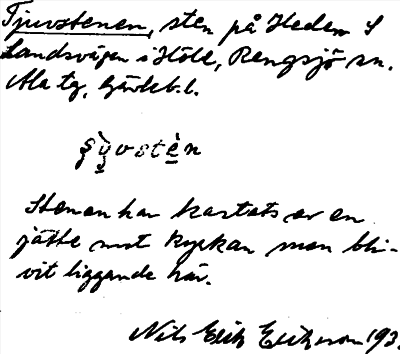 Tjuvstenen, sten på Heden S
Landsvägen i Höle, Rengsjö sn.
Ala tg, Gävleb. l.
Stenen har kastats av en
jätte mot kyrkan men bli-
vit liggande här.
Nils Erik Eriksson 193